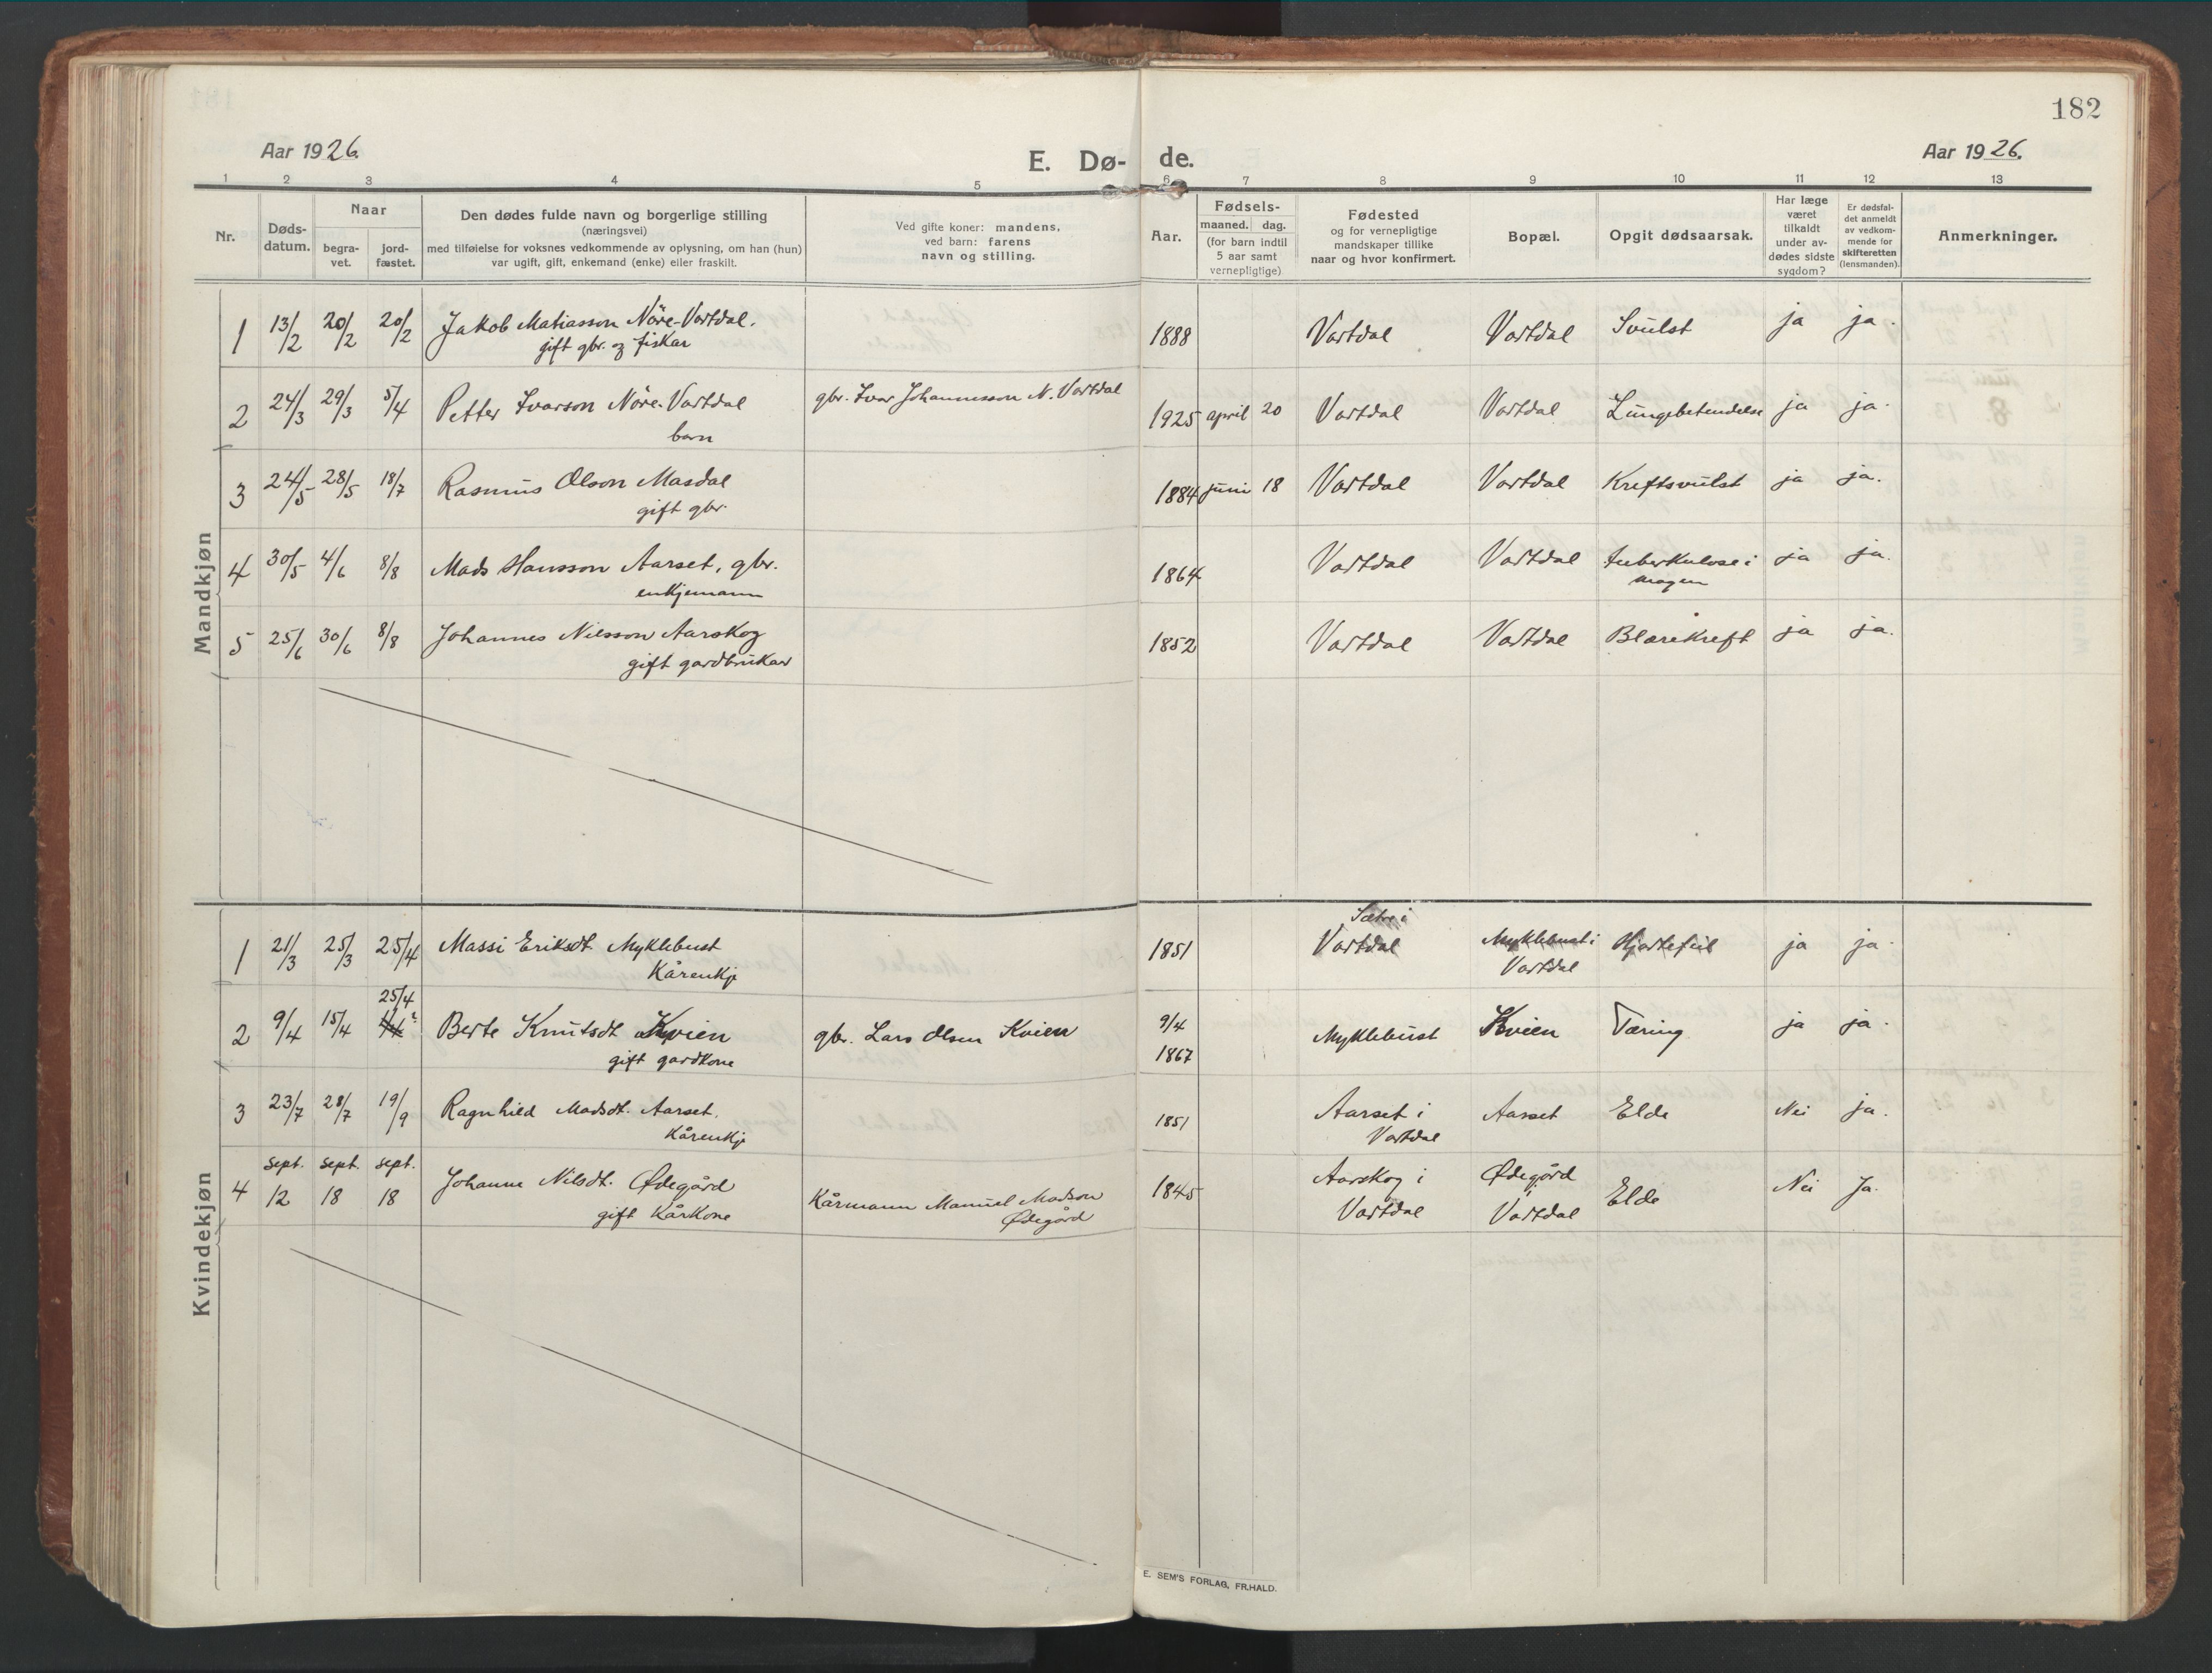 182
Aar 1926.
E. Dø-
de.
Aar 1926.
1 2 3 4 5 6 7 8 9 10 11 12 13
Nr.
Døds-
datum.
Naar
begra-
vet.
jord-
fæstet.
Den dødes fulde navn og borgerlige stilling
(næringsvei)
med tilføielse for voksnes vedkommende av oplysning, om han (hun)
var ugift, gift, enkemand (enke) eller fraskilt.
Ved gifte koner: mandens,
ved barn: farens
navn og stilling.
Aar.
Fødsels-
maaned. dag.
(for barn indtil
5 aar samt
vernepligtige)
Fødested
og for vernepligtige
mandskaper tillike
naar og hvor konfirmert.
Bopæl.
Opgit dødsaarsak.
Har læge
været
tilkaldt
under av-
dødes sidste
sygdom?
Er dødsfal-
det anmeldt
av vedkom-
mende for
skifteretten
(lensmanden).
Anmerkninger.
Mandkjøn
1 13/2 20/2 20/2 Jakob Matiasson Nöre-Vartdal. 1888 Vartdal Vartdal Svulst ja ja.
gift gbr. og fiskar
2 24/3 29/3 5/4 Petter Ivarson Nöre-Vartdal gbr. Ivar Johannesson N. Vartdal 1925 april 20 Vartdal Vartdal Lungebetendelse ja ja.
barn
3 24/5 28/5 18/7 Rasmus Olson Masdal 1884 juni 18 Vartdal Vartdal Kreftsvulst ja ja.
gift gbr.
4 30/5 4/6 8/8 Mads Hansson Aarset, gbr. 1864 Vartdal Vartdal tuberkulose i ja ja.
enkjemann magen
5 25/6 30/6 8/8 Johannes Nilsson Aarskog 1852 Vartdal Vartdal Blærekreft ja ja.
gift gardbrukar
Kvindekjøn
Sætre i
1 21/3 25/3 25/4 Massi Eriksdt. Myklebust 1851 Vartdal Myklebust i Hjartefeil ja ja.
Kårenkje Vartdal
25/4
2 9/4 15/4 Berte Knutsdt. Kvien gbr. Lars Olsen Kvien 9/4 Myklebust Kvien Tæring ja ja.
gift gardkone 1867
3 23/7 28/7 19/9 Ragnhild Madsdt. Aarset. 1851 Aarset i Aarset Elde Nei ja.
Kårenkje Vartdal
sept. sept. sept.
4 12 18 18 Johanne Nilsdt. Ødegård Kårmann Manuel Madson 1845 Aarskog i Ødegård Elde Nei Ja.
gift Kårkone Ødegård Vartdal Vartdal
E. SEM'S FORLAG, FR.HALD.